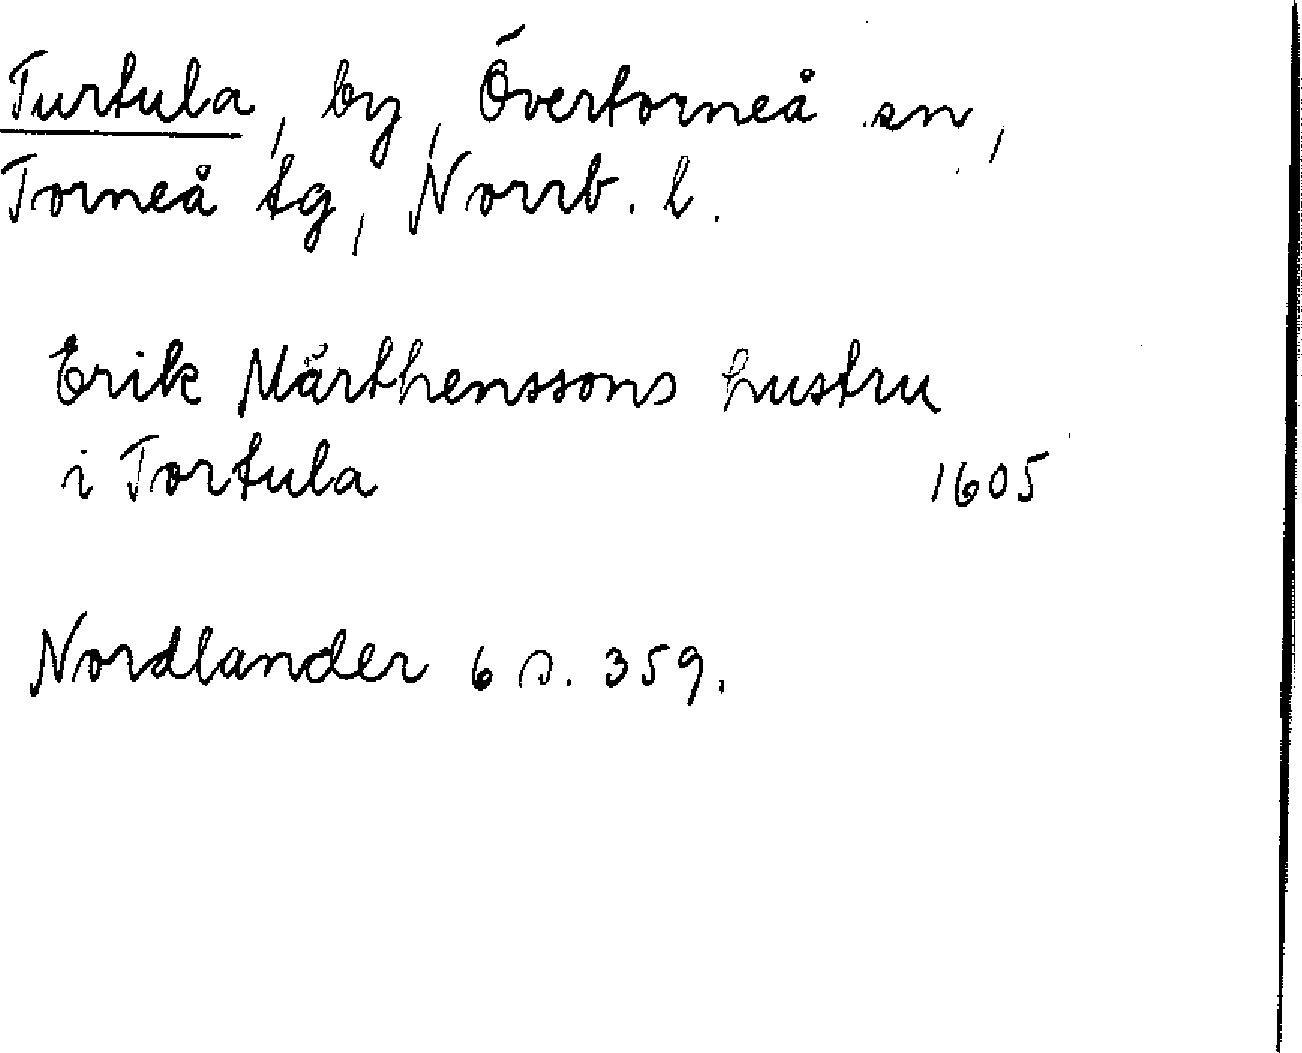 Turtula, by, Övertorneå sn,
Torneå tg, Norrb. l.
Erik Mårthenssons hustru
i Tortula 1605
Nordlander 6 s. 359.